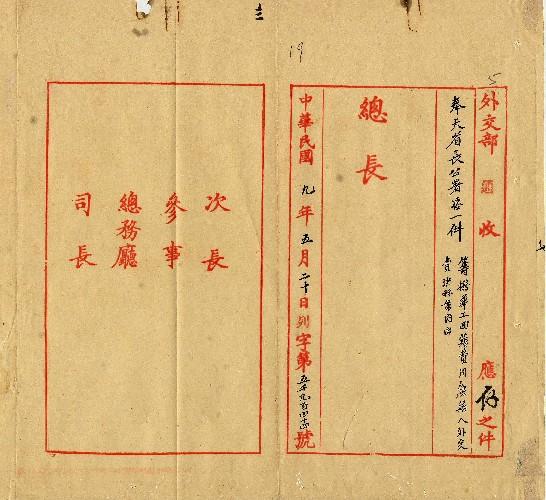 19
5
外交部 收 應存之件
奉天省長公署咨一件
籌撥華工回籍費用
總長
中華民國九年五月二十日列字第五千九百四十四號
次長
參事
總務廳
司長